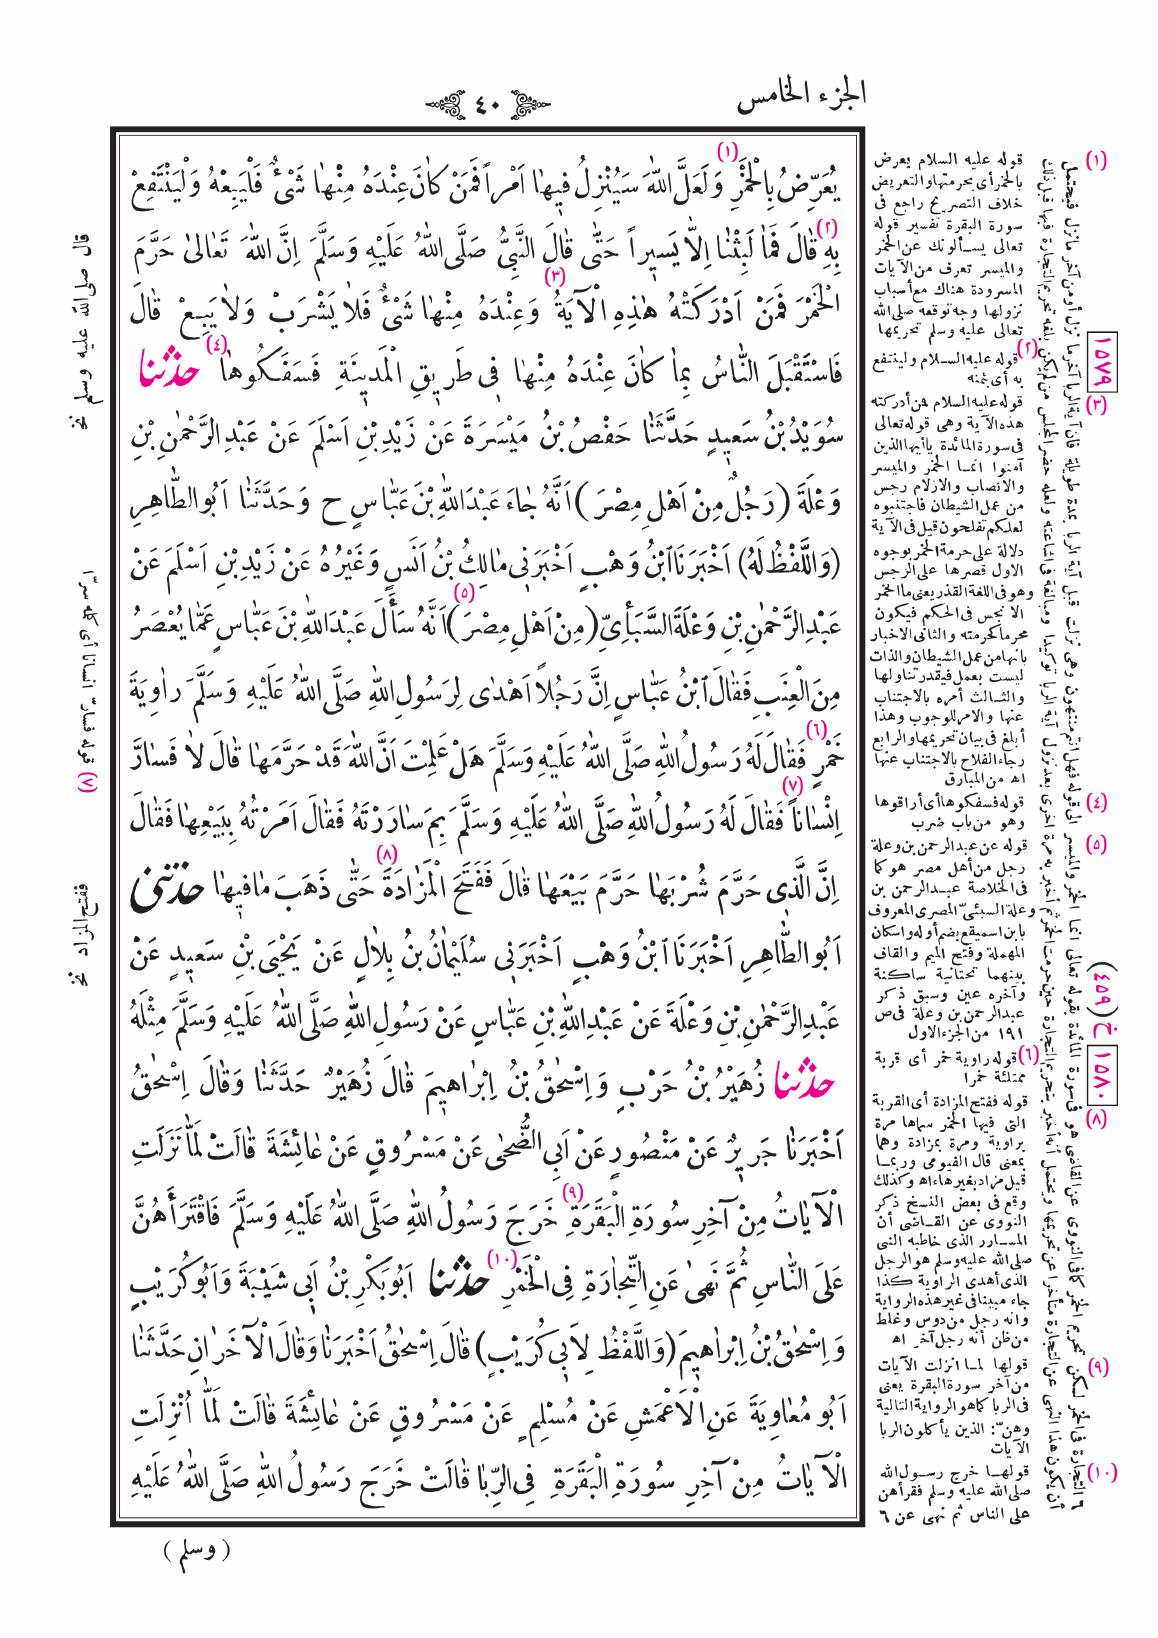 الجزء الخامس
٤٠
يُعَرِّضُ بِالْخَمْرِ (١) وَلَعَلَّ اللهَ سَيُنْزِلُ فِيهَا اَمْراً فَمَنْ كَانَ عِنْدَهُ مِنْهَا شَىْءٌ فَلْيَبِعْهُ وَلْيَنْتَفِعْ
بِهِ (٢) قَالَ فَمَا لَبِثْنَا اِلاَّ يَسِيراً حَتَّى قَالَ النَّبِىُّ صَلَّى اللهُ عَلَيْهِ وَسَلَّمَ اِنَّ اللهَ تَعَالىٰ حَرَّمَ
الْخَمْرَ فَمَنْ اَدْرَكَتْهُ هٰذِهِ الْآيَةُ (٣) وَعِنْدَهُ مِنْهَا شَىْءٌ فَلاَ يَشْرَبْ وَلاَ يَبِعْ قَالَ
فَاسْتَقْبَلَ النَّاسُ بِمَا كَانَ عِنْدَهُ مِنْهَا فِى طَرِيقِ الْمَدِينَةِ فَسَفَكُوهَا (٤) حدثنا
سُوَيْدُ بْنُ سَعِيدٍ حَدَّثَنَا حَفْصُ بْنُ مَيْسَرَةَ عَنْ زَيْدِ بْنِ اَسْلَمَ عَنْ عَبْدِ الرَّحْمٰنِ بْنِ
وَعْلَةَ (رَجُلٌ مِنْ اَهْلِ مِصْرَ) اَنَّهُ جَاءَ عَبْدَ اللهِ بْنَ عَبَّاسٍ ح وَحَدَّثَنَا اَبُو الطَّاهِرِ
(وَاللَّفْظُ لَهُ) اَخْبَرَنَا ابْنُ وَهْبٍ اَخْبَرَنِى مَالِكُ بْنُ اَنَسٍ وَغَيْرُهُ عَنْ زَيْدِ بْنِ اَسْلَمَ عَنْ
عَبْدِ الرَّحْمٰنِ بْنِ وَعْلَةَ السَّبَأِىِّ (مِنْ اَهْلِ مِصْرَ) (٥) اَنَّهُ سَأَلَ عَبْدَ اللهِ بْنَ عَبَّاسٍ عَمَّا يُعْصَرُ
مِنَ الْعِنَبِ فَقَالَ ابْنُ عَبَّاسٍ اِنَّ رَجُلاً اَهْدٰى لِرَسُولِ اللهِ صَلَّى اللهُ عَلَيْهِ وَسَلَّمَ رَاوِيَةَ
خَمْرٍ (٦) فَقَالَ لَهُ رَسُولُ اللهِ صَلَّى اللهُ عَلَيْهِ وَسَلَّمَ هَلْ عَلِمْتَ اَنَّ اللهَ قَدْ حَرَّمَهَا قَالَ لاَ فَسَارَّ
اِنْسَاناً (٧) فَقَالَ لَهُ رَسُولُ اللهِ صَلَّى اللهُ عَلَيْهِ وَسَلَّمَ بِمَ سَارَرْتَهُ فَقَالَ اَمَرْتُهُ بِبَيْعِهَا فَقَالَ
اِنَّ الَّذِى حَرَّمَ شُرْبَهَا حَرَّمَ بَيْعَهَا قَالَ فَفَتَحَ الْمَزَادَةَ (٨) حَتَّى ذَهَبَ مَا فِيهَا حدثنى
اَبُو الطَّاهِرِ اَخْبَرَنَا ابْنُ وَهْبٍ اَخْبَرَنِى سُلَيْمَانُ بْنُ بِلاَلٍ عَنْ يَحْيَى بْنِ سَعِيدٍ عَنْ
عَبْدِ الرَّحْمٰنِ بْنِ وَعْلَةَ عَنْ عَبْدِ اللهِ بْنِ عَبَّاسٍ عَنْ رَسُولِ اللهِ صَلَّى اللهُ عَلَيْهِ وَسَلَّمَ مِثْلَهُ
حدثنا زُهَيْرُ بْنُ حَرْبٍ وَ اِسْحٰقُ بْنُ اِبْرَاهِيمَ قَالَ زُهَيْرٌ حَدَّثَنَا وَقَالَ اِسْحٰقُ
اَخْبَرَنَا جَرِيرٌ عَنْ مَنْصُورٍ عَنْ اَبِى الضُّحَى عَنْ مَسْرُوقٍ عَنْ عَائِشَةَ قَالَتْ لَمَّا نَزَلَتِ
الْآيَاتُ مِنْ آخِرِ سُورَةِ الْبَقَرَةِ (٩) خَرَجَ رَسُولُ اللهِ صَلَّى اللهُ عَلَيْهِ وَسَلَّمَ فَاقْتَرَأَهُنَّ
عَلَى النَّاسِ ثُمَّ نَهىٰ عَنِ التِّجَارَةِ فِى الْخَمْرِ (١٠) حدثنا اَبُوبَكْرِ بْنُ اَبِى شَيْبَةَ وَاَبُو كُرَيْبٍ
وَ اِسْحٰقُ بْنُ اِبْرَاهِيمَ (وَاللَّفْظُ لِاَبِى كُرَيْبٍ) قَالَ اِسْحٰقُ اَخْبَرَنَا وَقَالَ الْآخَرَانِ حَدَّثَنَا
اَبُو مُعَاوِيَةَ عَنِ الْاَعْمَشِ عَنْ مُسْلِمٍ عَنْ مَسْرُوقٍ عَنْ عَائِشَةَ قَالَتْ لَمَّا اُنْزِلَتِ
الْآيَاتُ مِنْ آخِرِ سُورَةِ الْبَقَرَةِ فِى الرِّبَا قَالَتْ خَرَجَ رَسُولُ اللهِ صَلَّى اللهُ عَلَيْهِ
( وسلم )
(١) قوله عليه السلام يعرض
بالخمر أى بحرمتها والتعريض
خلاف التصريح راجع فى
سورة البقرة تفسير قوله
تعالى يسألونك عن الخمر
والميسر تعرف من الآيات
المسرودة هناك مع أسباب
نزولها وجه توقعه صلى الله
تعالى عليه وسلم تحريمها
(٢) قوله عليه السلام ولينتفع
به أى بثمنه
١٥٧٩
(٣) قوله عليه السلام فمن أدركته
هذه الآية وهى قوله تعالى
فى سورة المائدة ياأيها الذين
آمنوا انما الخمر والميسر
والانصاب والازلام رجس
من عمل الشيطان فاجتنبوه
لعلكم تفلحون قيل فى الآية
دلالة على حرمة الخمر بوجوه
الاول قصرها على الرجس
وهو فى اللغة القذر يعنى ما الخمر
الا نجس فى الحكم فيكون
محرما كحرمته والثانى الاخبار
بانها من عمل الشيطان والذات
ليست بعمل فيقدر تناولها
والثالث أمره بالاجتناب
عنها والامر للوجوب وهذا
أبلغ فى بيان تحريمها والرابع
رجاء الفلاح بالاجتناب عنها
اه من المبارق
(٤) قوله فسفكوها أى أراقوها
وهو من باب ضرب
(٥) قوله عن عبدالرحمن بن وعلة
رجل من أهل مصر هو كما
فى الخلاصة عبدالرحمن بن
وعلة السبئىّ المصرى المعروف
بابن اسميقع بضم أوله واسكان
المهملة وفتح الميم والقاف
بينهما تحتانية ساكنة
وآخره عين وسبق ذكر
عبدالرحمن بن وعلة فى ص
١٩١ من الجزء الاول
خ (٤٥٩)
١٥٨٠
(٦) قوله راوية خمر أى قربة
ممتلئة خمرا
(٨) قوله ففتح المزادة أى القربة
التى فيها الخمر سماها مرة
براوية ومرة بمزادة وهما
بمعنى قال الفيومى وربما
قيل مزاد بغير هاء اه وكذلك
وقع فى بعض النسخ ذكر
النووى عن القاضى أن
المسارر الذى خاطبه النبى
صلى الله عليه وسلم هو الرجل
الذى أهدى الراوية كذا
جاء مبينا فى غير هذه الرواية
وانه رجل من دوس وغلط
من ظن أنه رجل آخر اه
(٩) قولها لما انزلت الآيات
من آخر سورة البقرة يعنى
فى الربا كما هو الرواية التالية
وهنّ: الذين يأكلون الربا
الآيات
(١٠) قولها خرج رسول الله
صلى الله عليه وسلم فقرأهن
على الناس ثم نهى عن ٦
قال صلى الله عليه وسلم نخ
(٧) قوله فسارّ انسانا أى كلمه سرّا
ففتح المزاد نخ